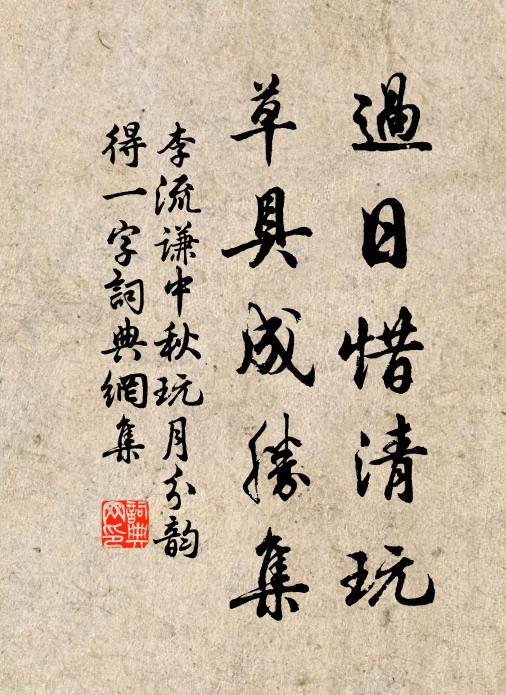 過日惜清玩
草具成勝集
李流謙中秋玩月分韵
得一字詞典網集
詞典網印